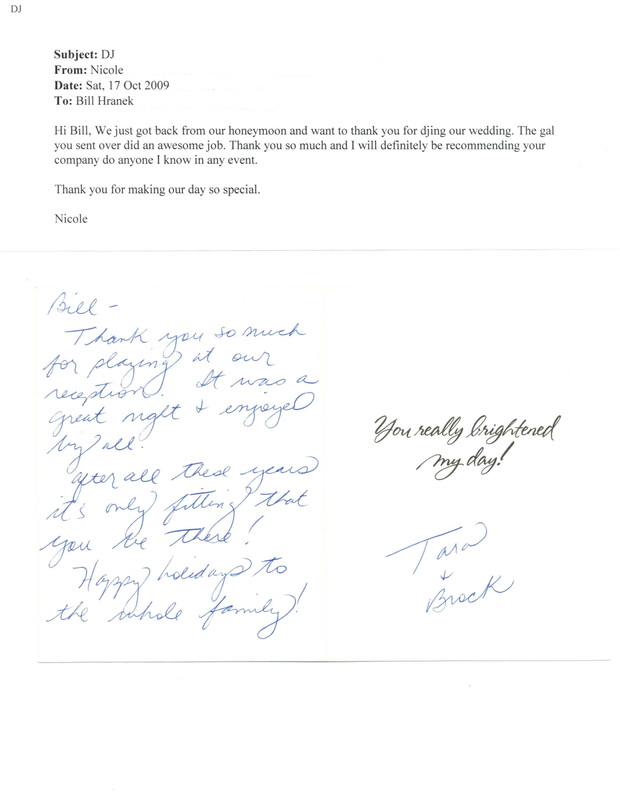 DJ
Subject: DJ
From: Nicole
Date: Sat, 17 Oct 2009
To: Bill Hranek
Hi Bill, We just got back from our honeymoon and want to thank you for djing our wedding. The gal
you sent over did an awesome job. Thank you so much and I will definitely be recommending your
company do anyone I know in any event.
Thank you for making our day so special.
Nicole
Bill -
Thank you so much
for playing at our
reception. It was a
great night & enjoyed
by all.
After all these years
it's only fitting that
you be there!
Happy holidays to
the whole family!
You really brightened
my day!
Tara
&
Brock